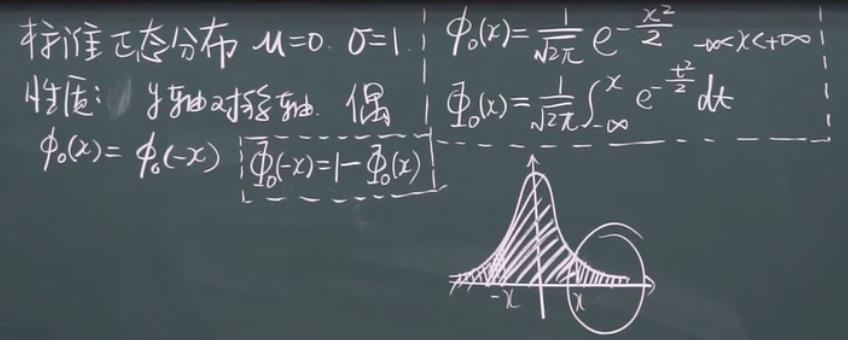 标准正态分布 μ=0. σ=1.
性质: y轴对称轴. 偶
ϕ₀(x)=ϕ₀(-x)
Φ₀(-x)=1-Φ₀(x)
ϕ₀(x)=1/√2π e^(-x²/2) -∞<x<+∞
Φ₀(x)=1/√2π ∫_{-∞}^{x} e^(-t²/2) dt
-x x